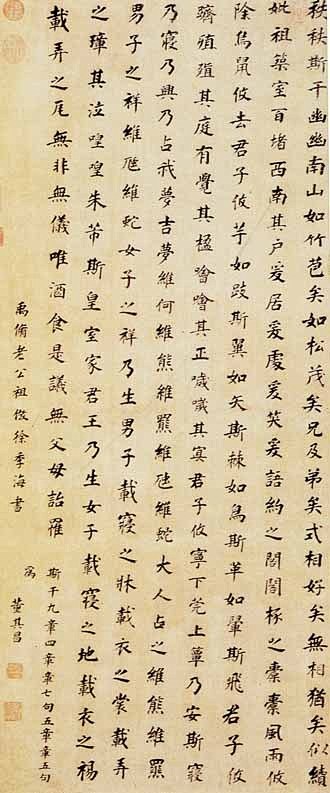 秩秩斯干幽幽南山如竹苞矣如松茂矣兄及弟矣式相好矣無相猶矣似續
妣祖築室百堵西南其户爰居爰處爰笑爰語約之閣閣椓之橐橐風雨攸
除鳥鼠攸去君子攸芋如跂斯翼如矢斯棘如鳥斯革如翬斯飛君子攸
躋殖殖其庭有覺其楹噲噲其正噦噦其冥君子攸寧下莞上簟乃安斯寢
乃寢乃興乃占我夢吉夢維何維熊維羆維虺維蛇大人占之維熊維羆
男子之祥維虺維蛇女子之祥乃生男子載寢之牀載衣之裳載弄
之璋其泣喤喤朱芾斯皇室家君王乃生女子載寢之地載衣之裼
載弄之瓦無非無儀唯酒食是議無父母詒罹
斯干九章四章章七句五章章五句
為
禹脩老公祖倣徐季海書
董其昌